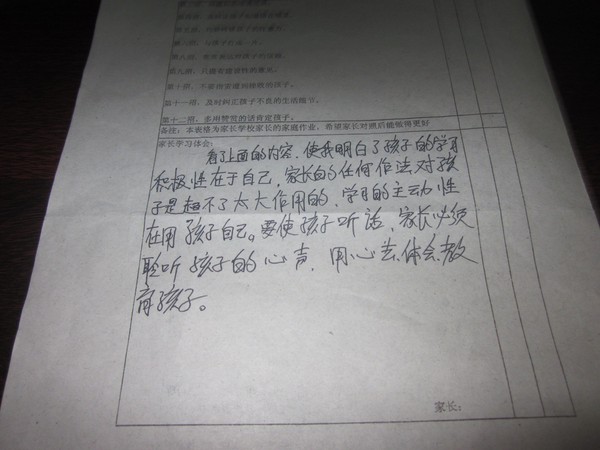 第九招，只提有建设性的意见。
第十招、不要得宠逼到挫败的孩子。
第十一招、及时纠正孩子不良的生活细节。
第十二招、多用赞赏的话肯定孩子。
备注：本表格为家长学校家长的家庭作业，希望家长对照后能做得更好
家长学习体会：
看了上面的内容，使我明白了孩子的学习
积极性在于自己，家长的任何作法对孩
子是起不了太大作用的，学习的主动性
在用孩子自己。要使孩子听话，家长必须
聆听孩子的心声，用心去体会教
育孩子。
家长：